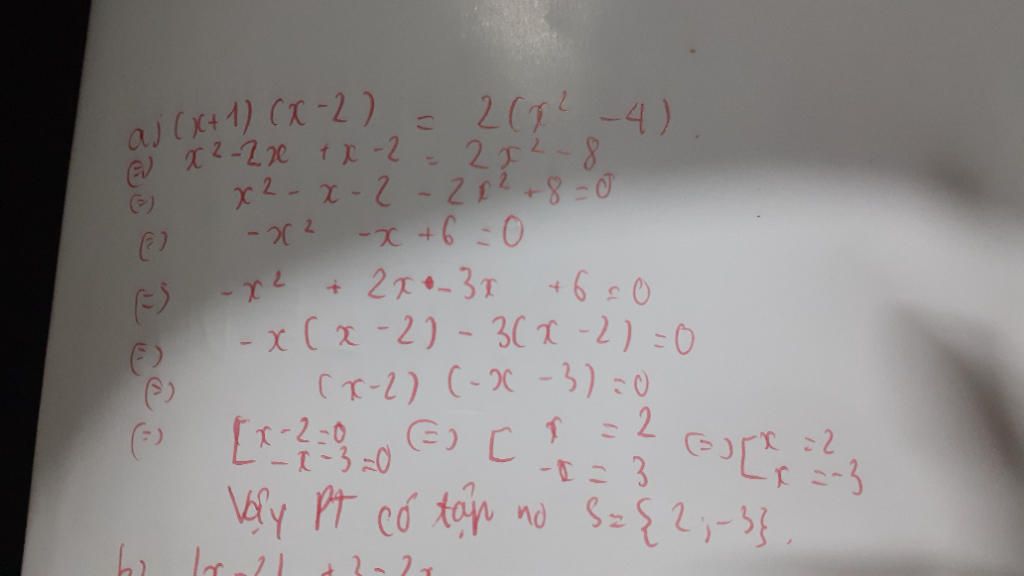 a) (x+1) (x-2) = 2(x² -4)
(=) x²-2x +x-2 = 2x²-8
(=) x²-x-2-2x²+8=0
(=) -x² -x+6=0
(=) -x² + 2x-3x +6=0
(=) -x(x-2)-3(x-2)=0
(=) (x-2) (-x-3)=0
(=) [x-2=0 -x-3=0 (=) [x = 2 -x = 3 (=) [x = 2 x = -3
Vậy PT có tập no S={2;-3}.
b) |x-2| +3=2x